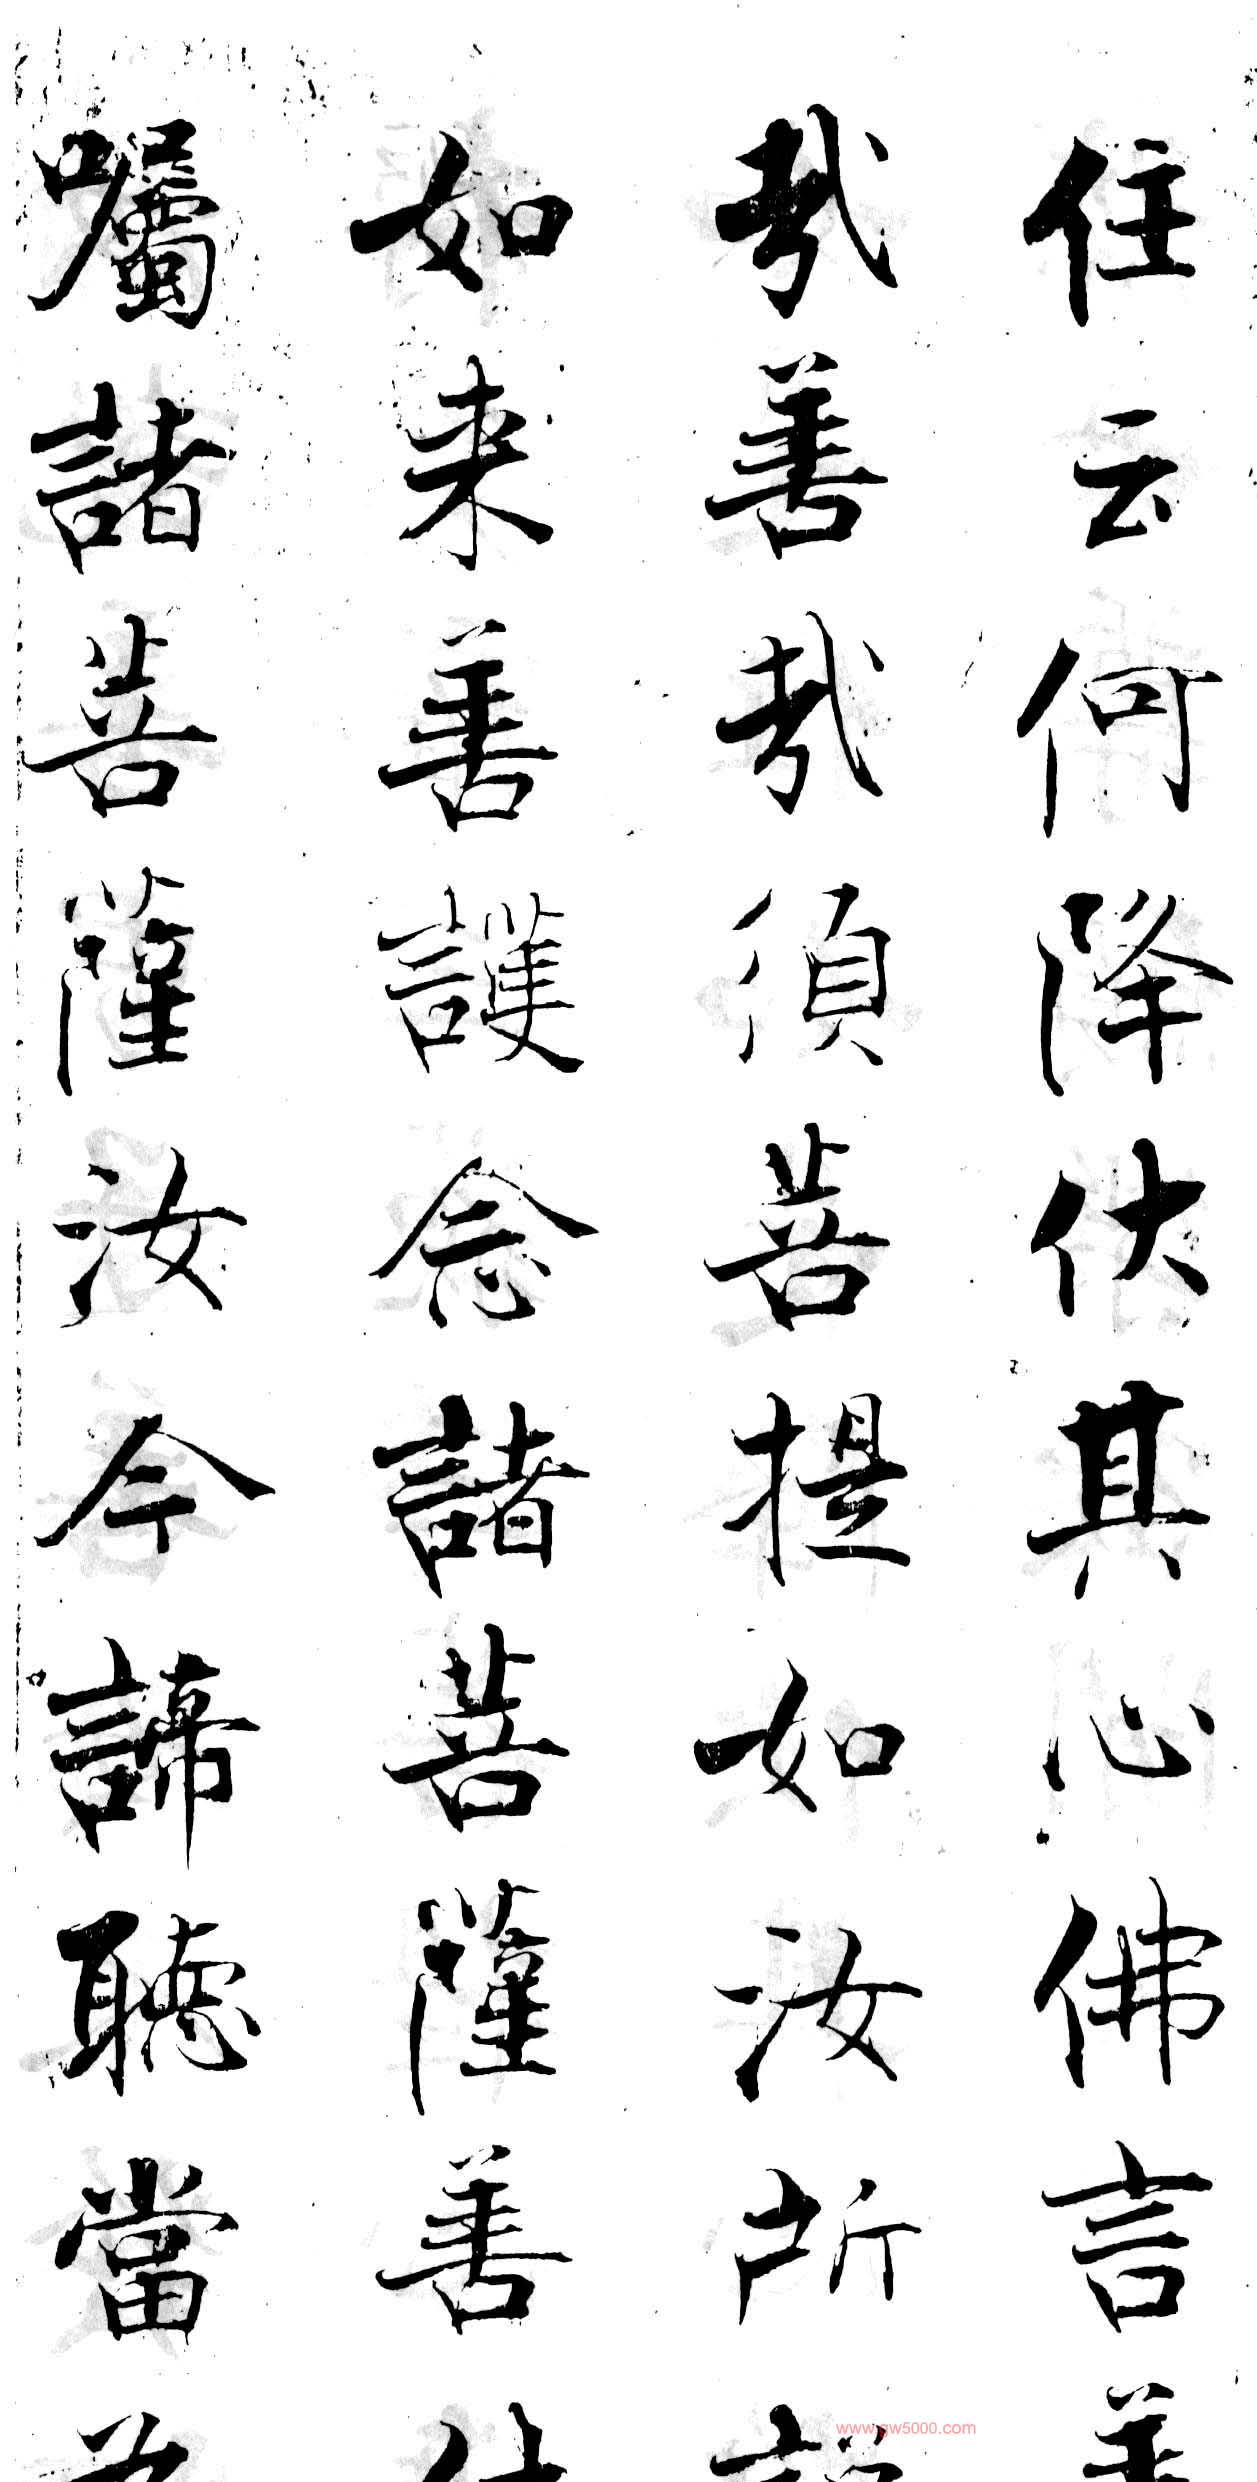 住云何降伏其心佛言善
哉善哉須菩提如汝所說
如来善護念諸菩薩善付
囑諸菩薩汝今諦聽當為
www.gw5000.com